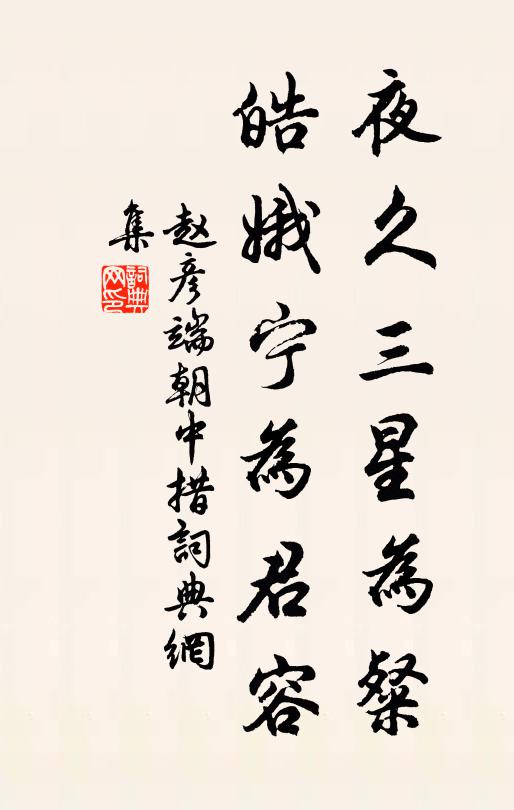 夜久三星為粲
皓娥宁為君容
赵彦端朝中措詞典網
集
詞典
网印